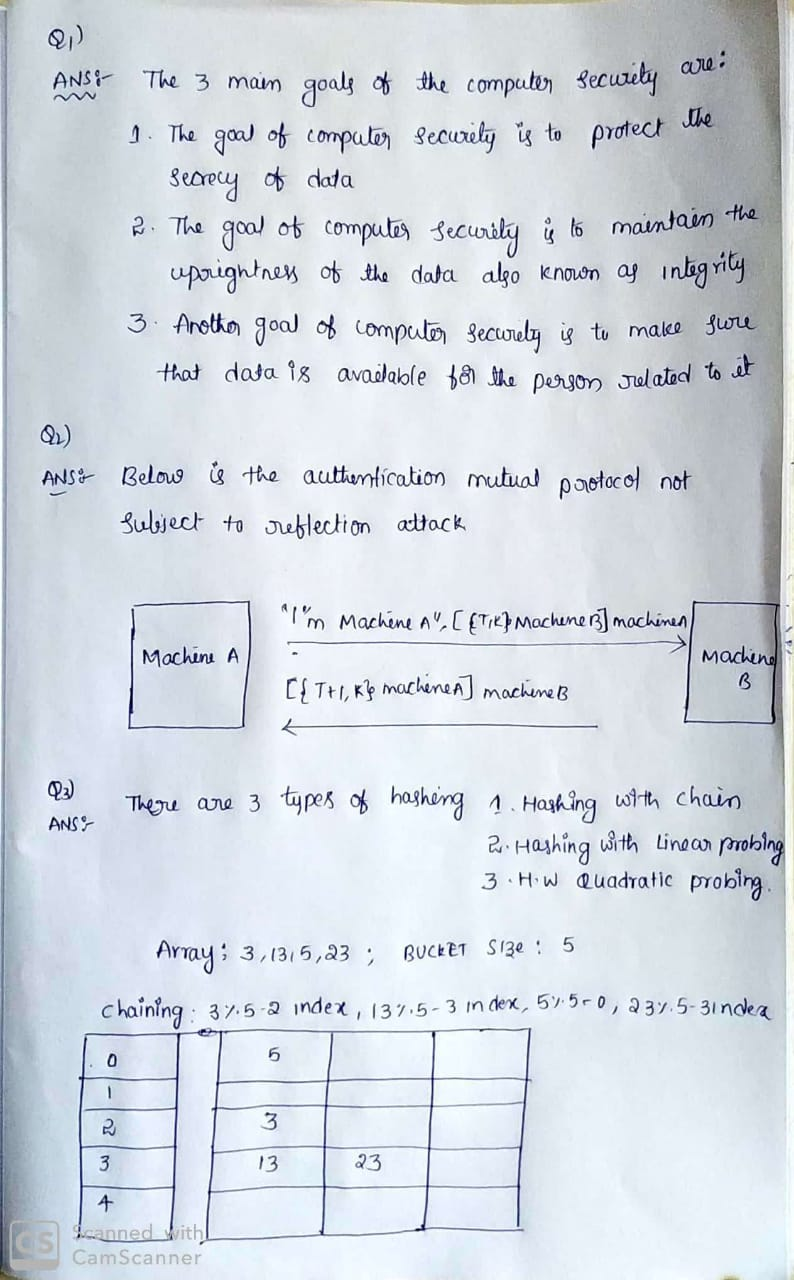 Q1)
ANS:- The 3 main goals of the computer security are:
1. The goal of computer security is to protect the
secrecy of data
2. The goal of computer security is to maintain the
uprightness of the data also known as integrity
3. Another goal of computer security is to make sure
that data is available for the person related to it
Q2)
ANS:- Below is the authentication mutual protocol not
subject to reflection attack
"I"m Machine A", [{T,K} Machine B] machine A
Machine A
Machine
B
[{T+1, K} machine A] machine B
Q3)
ANS:- There are 3 types of hashing 1. Hashing with chain
2. Hashing with Linear probing
3. H.W Quadratic probing.
Array: 3,13,5,23 ; BUCKET Size : 5
chaining: 3%5-2 index, 13%5-3 index, 5%5-0, 23%5-3index
0 5
1
2 3
3 13 23
4
CS Scanned with
CamScanner